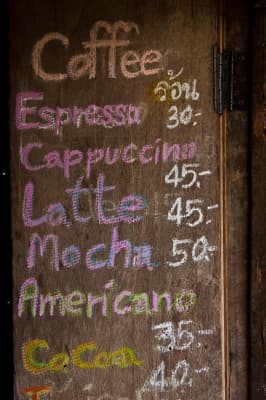 Coffee
ร้อน
Espresso 30.-
Cappuccino
45.-
Latte 45.-
Mocha 50.-
Americano
35.-
CoCoa
40.-